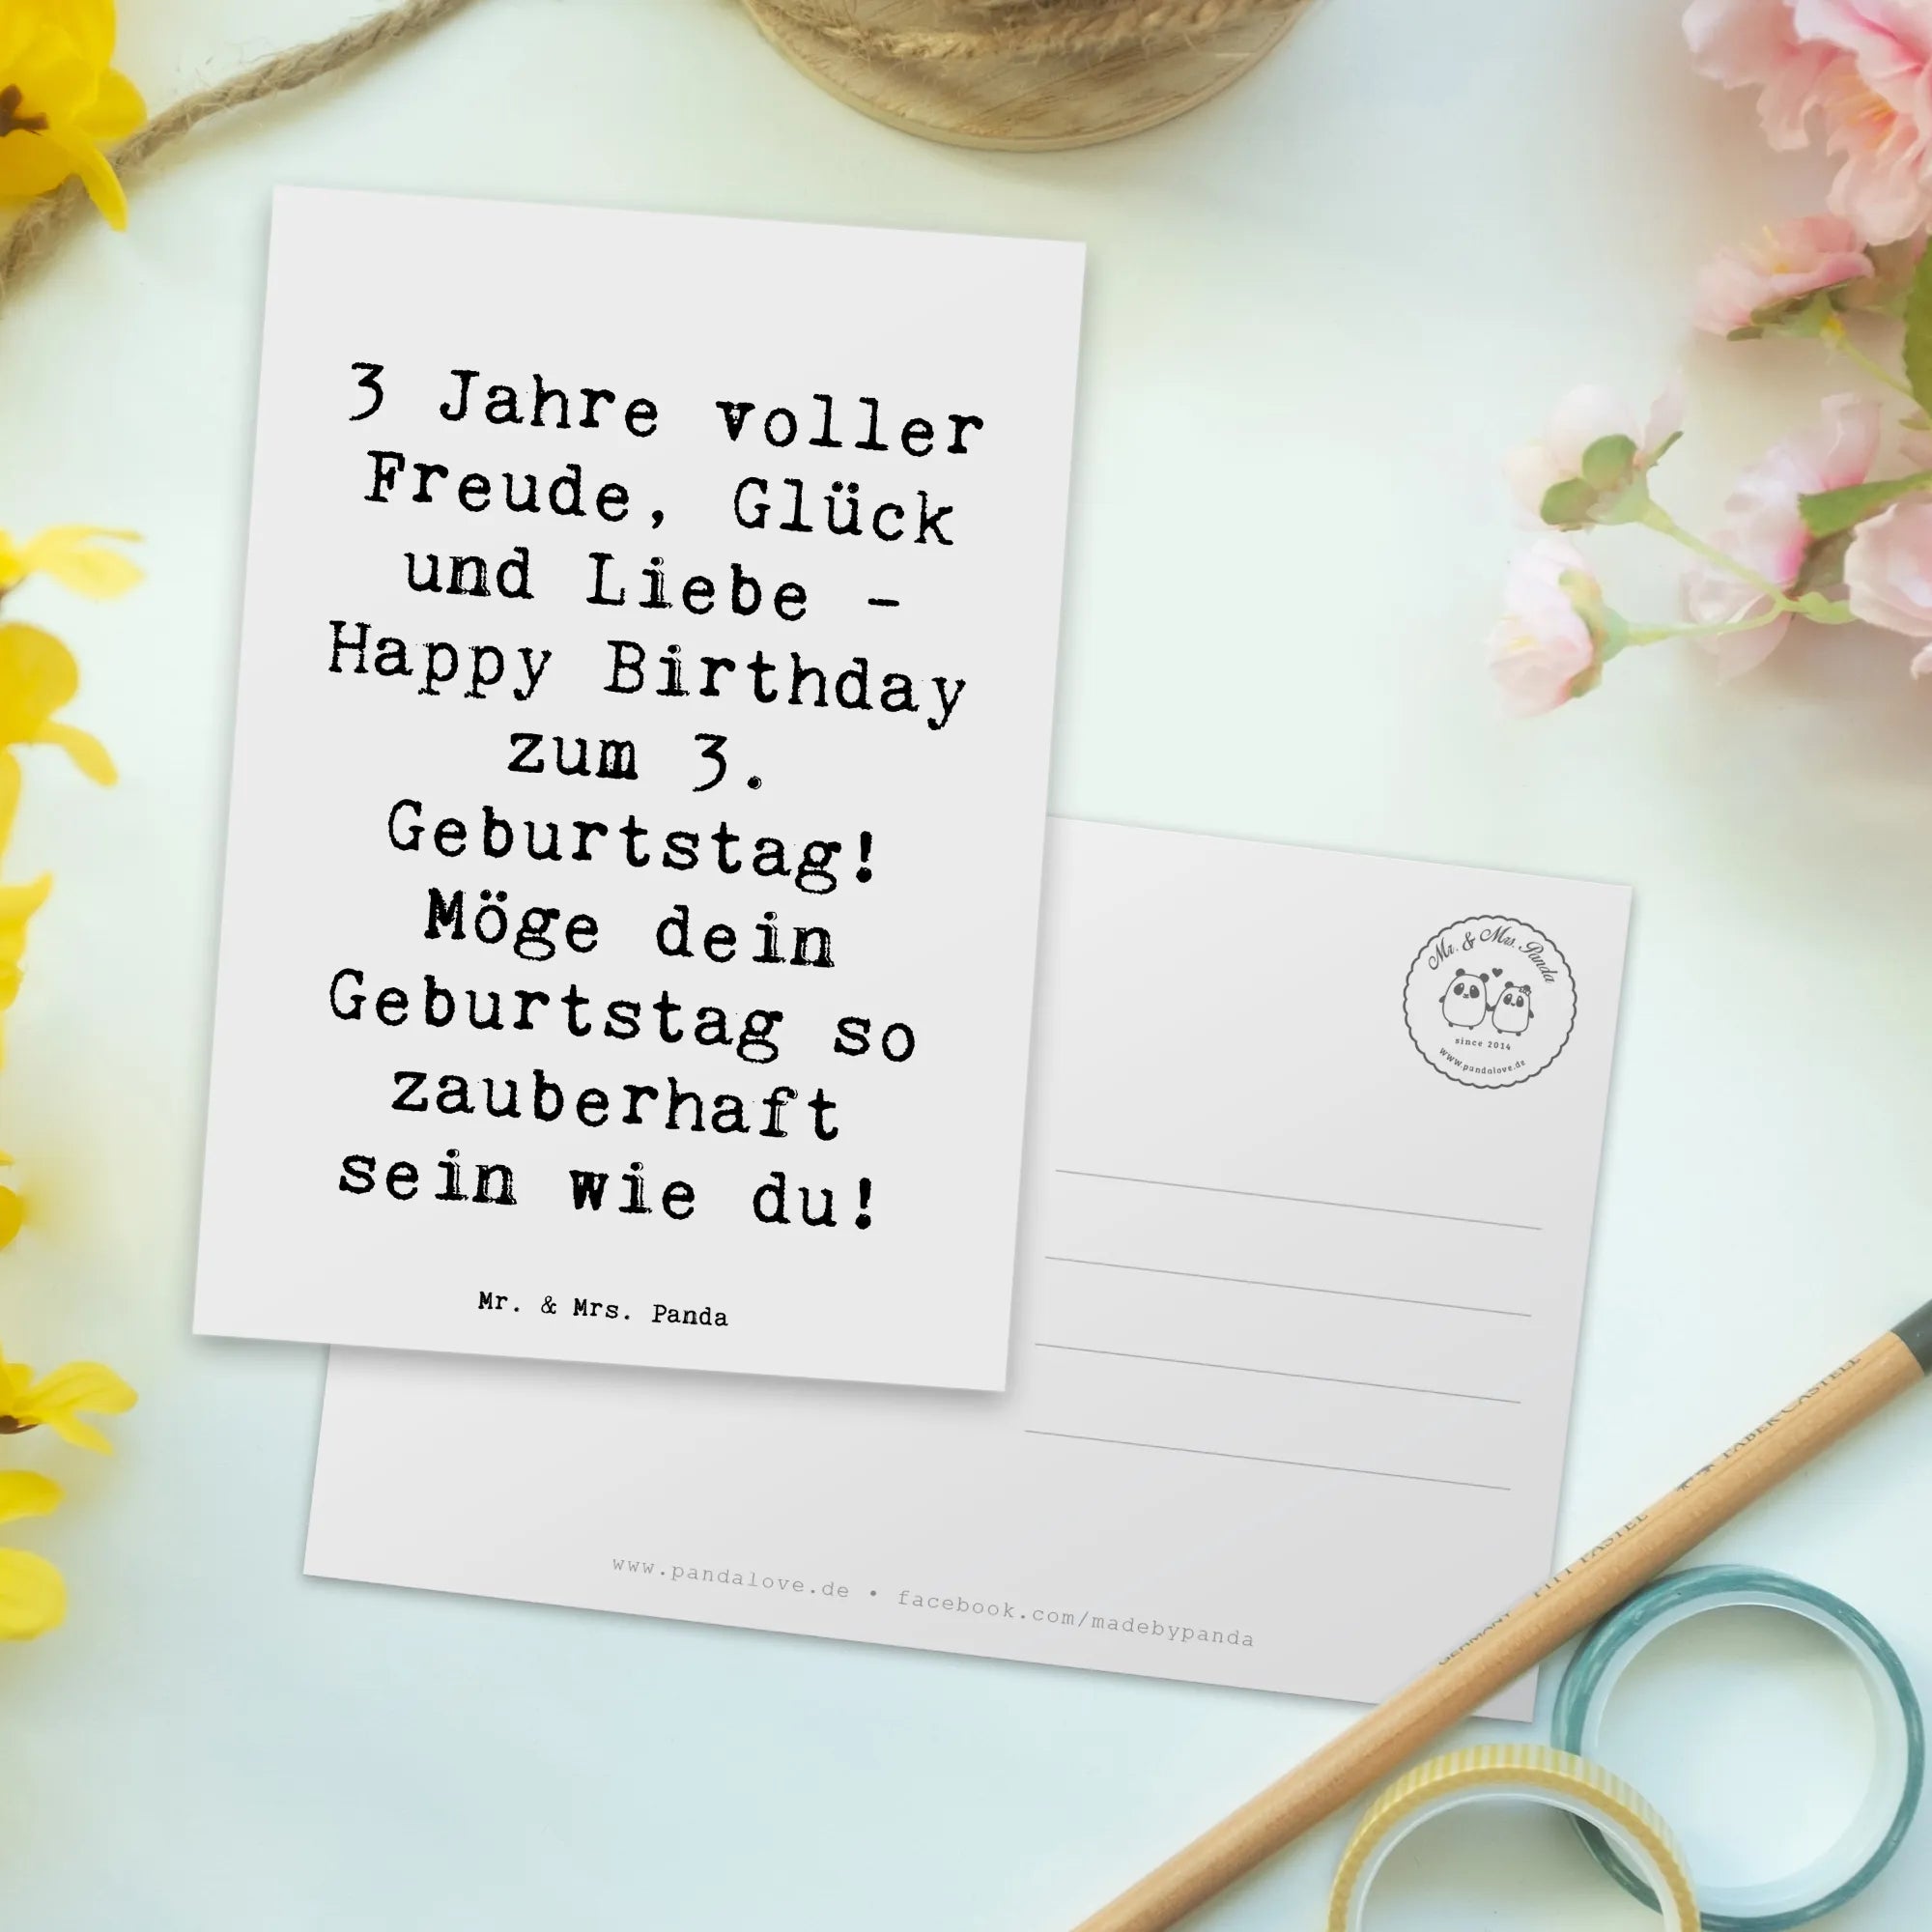 3 Jahre voller
Freude, Glück
und Liebe -
Happy Birthday
zum 3.
Geburtstag!
Möge dein
Geburtstag so
zauberhaft
sein wie du!
Mr. & Mrs. Panda
Mr. & Mrs. Panda
since 2014
www.pandalove.de
www.pandalove.de • facebook.com/madebypanda
GERMANY PITT PASTEL FABER-CASTELL